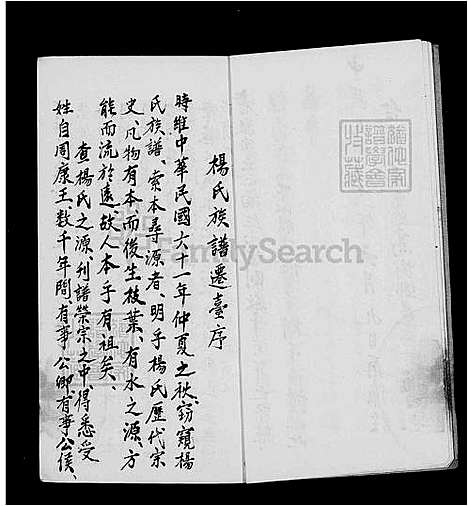 楊氏族譜遷臺序
時維中華民國六十一年仲夏之秋、窃窺楊
氏族譜、索本尋源者、明乎楊氏歷代宗
史、凡物有本而後生枝葉、有水之源、方
能而流於遠、故人本乎有祖矣、
查楊氏之源、利譜榮宗之中、得悉受
姓自周康王、数千年間、有事公卿、有事公侯、
FamilySearch